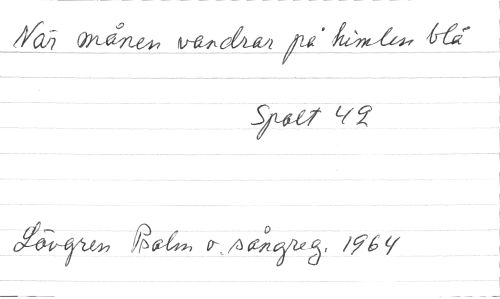 När månen vandrar på himlen blå
Spalt 42
Lövgren Psalm o. sångreg. 1964